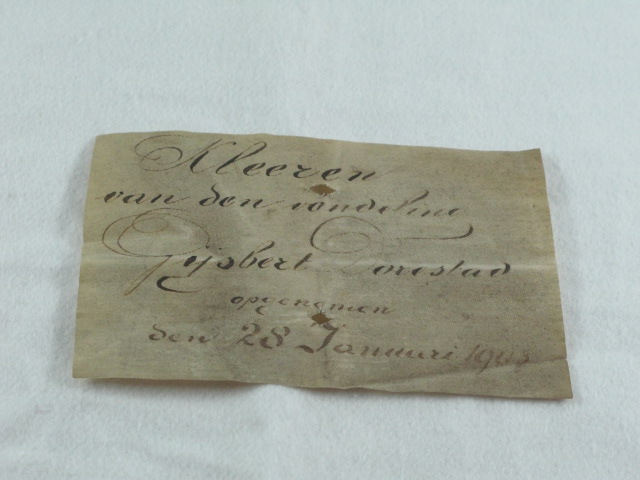 Kleeren
van den vondeling
Gijsbert Dorestad
opgenomen
den 28 Januari